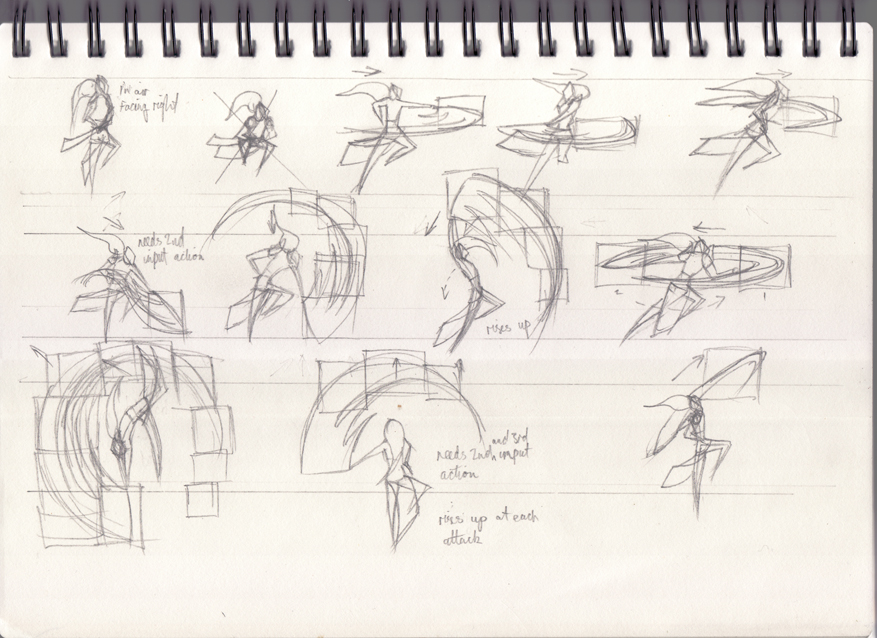 in air
facing right
needs 2nd
input action
rises up
and 3rd
needs 2nd input
action
rises up at each
attack